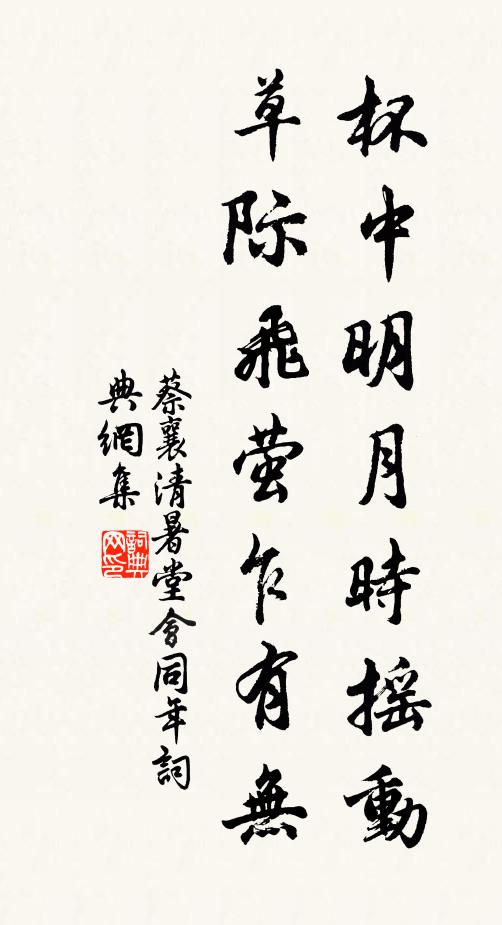 杯中明月時摇動
草际飛萤乍有無
蔡襄清暑堂會同年詞
典網集
詞典网印